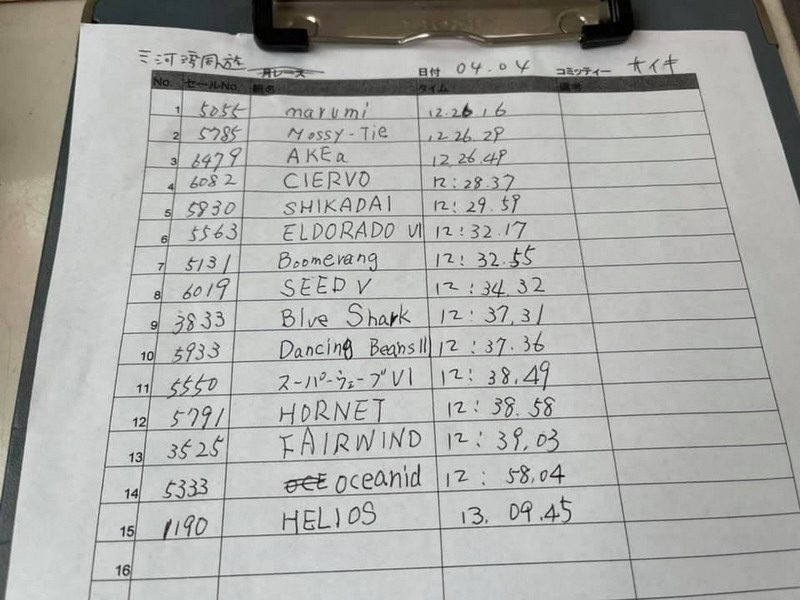 三河湾周遊 月レース 日付 04.04 コミッティー サイキ
No. セールNo. 艇名 タイム 備考
1 5055 marumi 12.26.16
2 5785 Mossy-Tie 12.26.29
3 6479 AKEa 12 26.49
4 6082 CIERVO 12:28.37
5 5830 SHIKADAI 12:29.59
6 5563 ELDORADO VI 12:32.17
7 5131 Boomerang 12:32.55
8 6019 SEED V 12:34.32
9 3833 Blue Shark 12:37.31
10 5933 Dancing Beans II 12:37.36
11 5550 スーパーウェーブVI 12:38.49
12 5791 HORNET 12:38.58
13 3525 FAIRWIND 12:39.03
14 5333 oceanid 12:58.04
15 1190 HELIOS 13.09.45
16